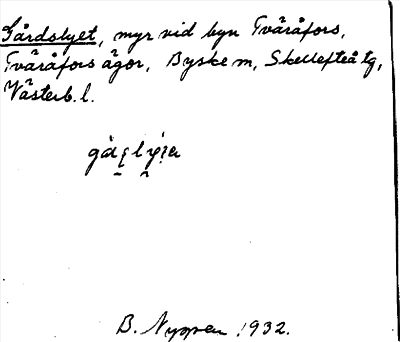 Gårdslyet, myr vid byn Tvåråfors,
Tvåråfors ägor, Byske sn, Skellefteå tg,
Västerb. l.
B. Nyman 1932.